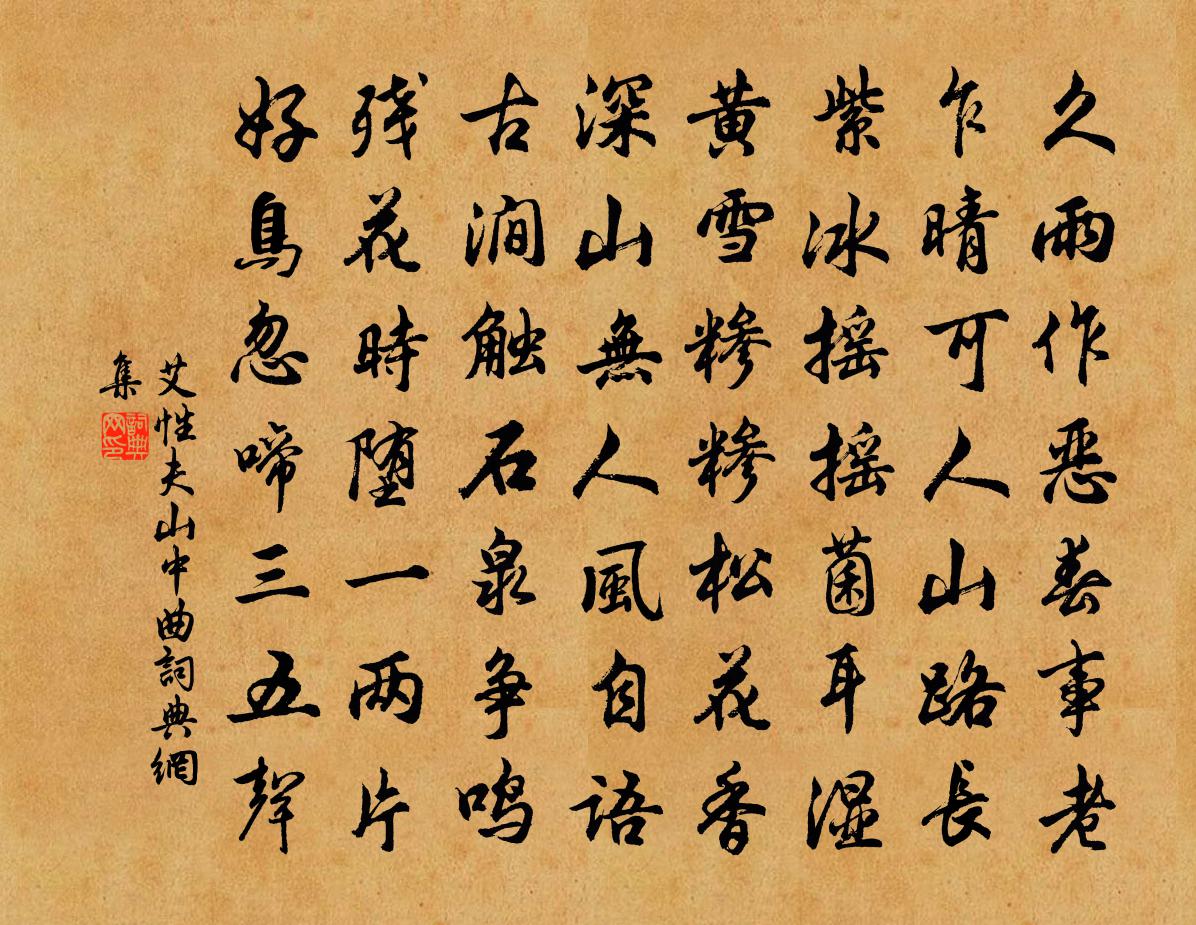 久雨作恶春事老
乍晴可人山路長
紫冰摇摇菌耳湿
黄雪糁糁松花香
深山無人風自語
古涧触石泉争鸣
残花時堕一两片
好鳥忽啼三五聲
艾性夫山中曲詞典網
集
詞典
网印